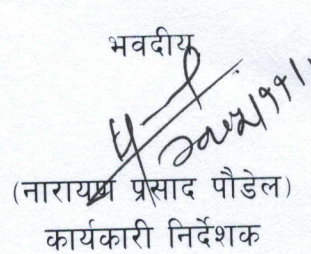 भवदीय
(नारायण प्रसाद पौडेल)
कार्यकारी निर्देशक